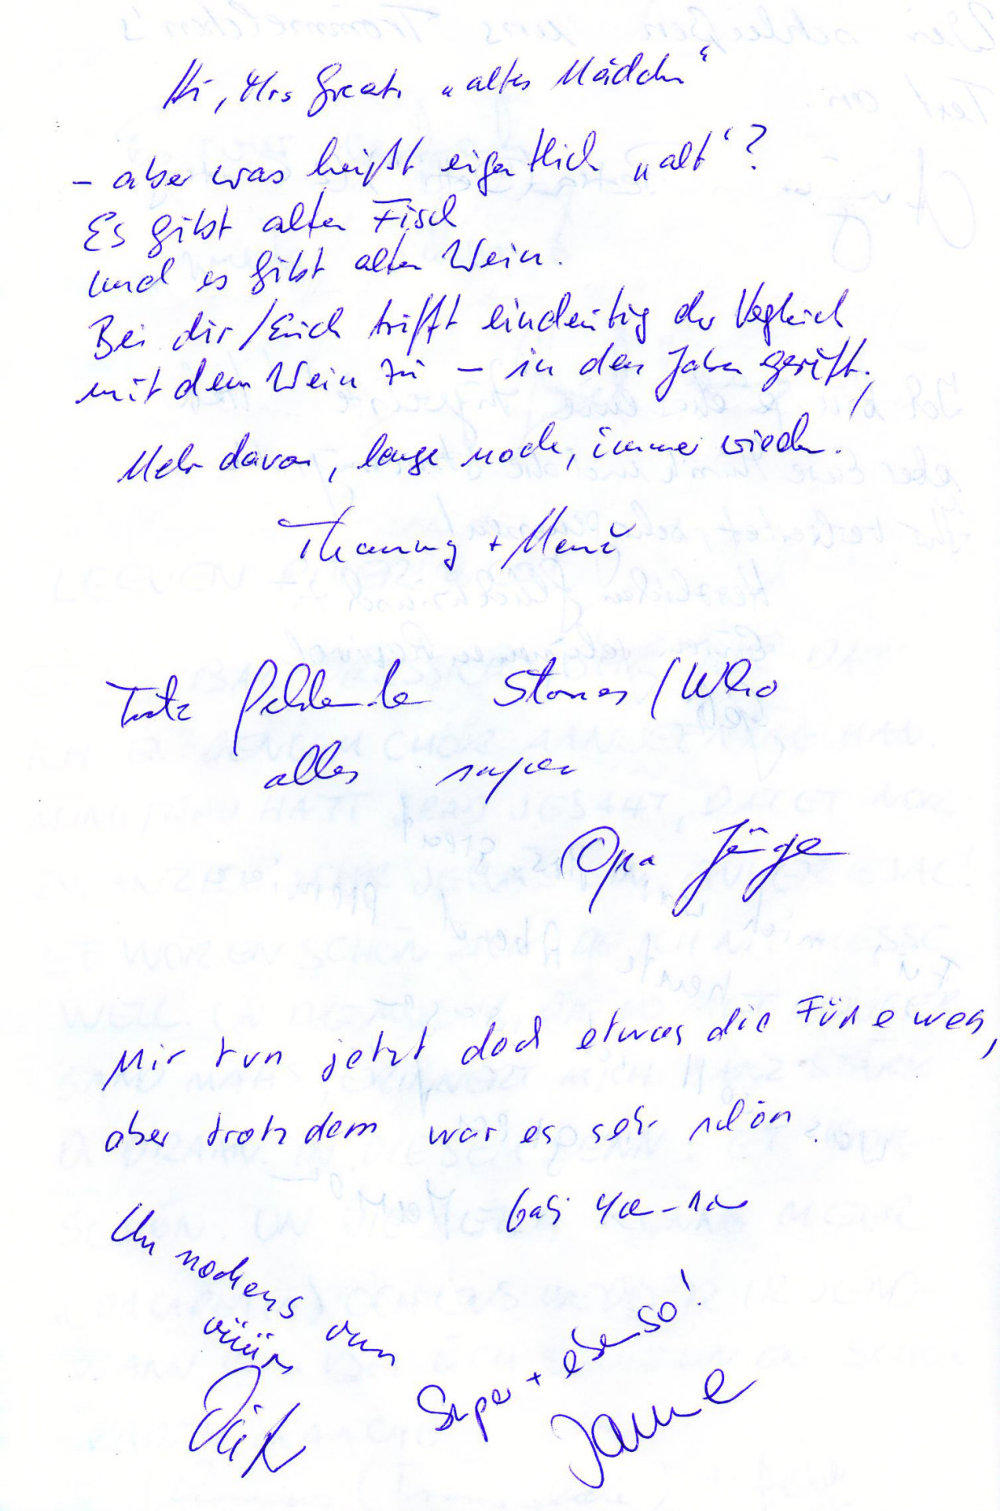 Hi, Mrs Greats „altes Mädchen“
– aber was heißt eigentlich „alt“?
Es gibt alten Fisch
und es gibt alten Wein.
Bei dir/Euch trifft eindeutig der Vergleich
mit dem Wein zu – in den Jahren gereift.
Mehr davon, lange noch, immer wieder.
+
Trotz fehlende Stones / Who
alles super
Opa Jürgen
Mir tun jetzt doch etwas die Füße weh,
aber trotzdem war es sehr schön.
Un nochens vun
vüüürs
Super + ebenso!
Dirk
Janne